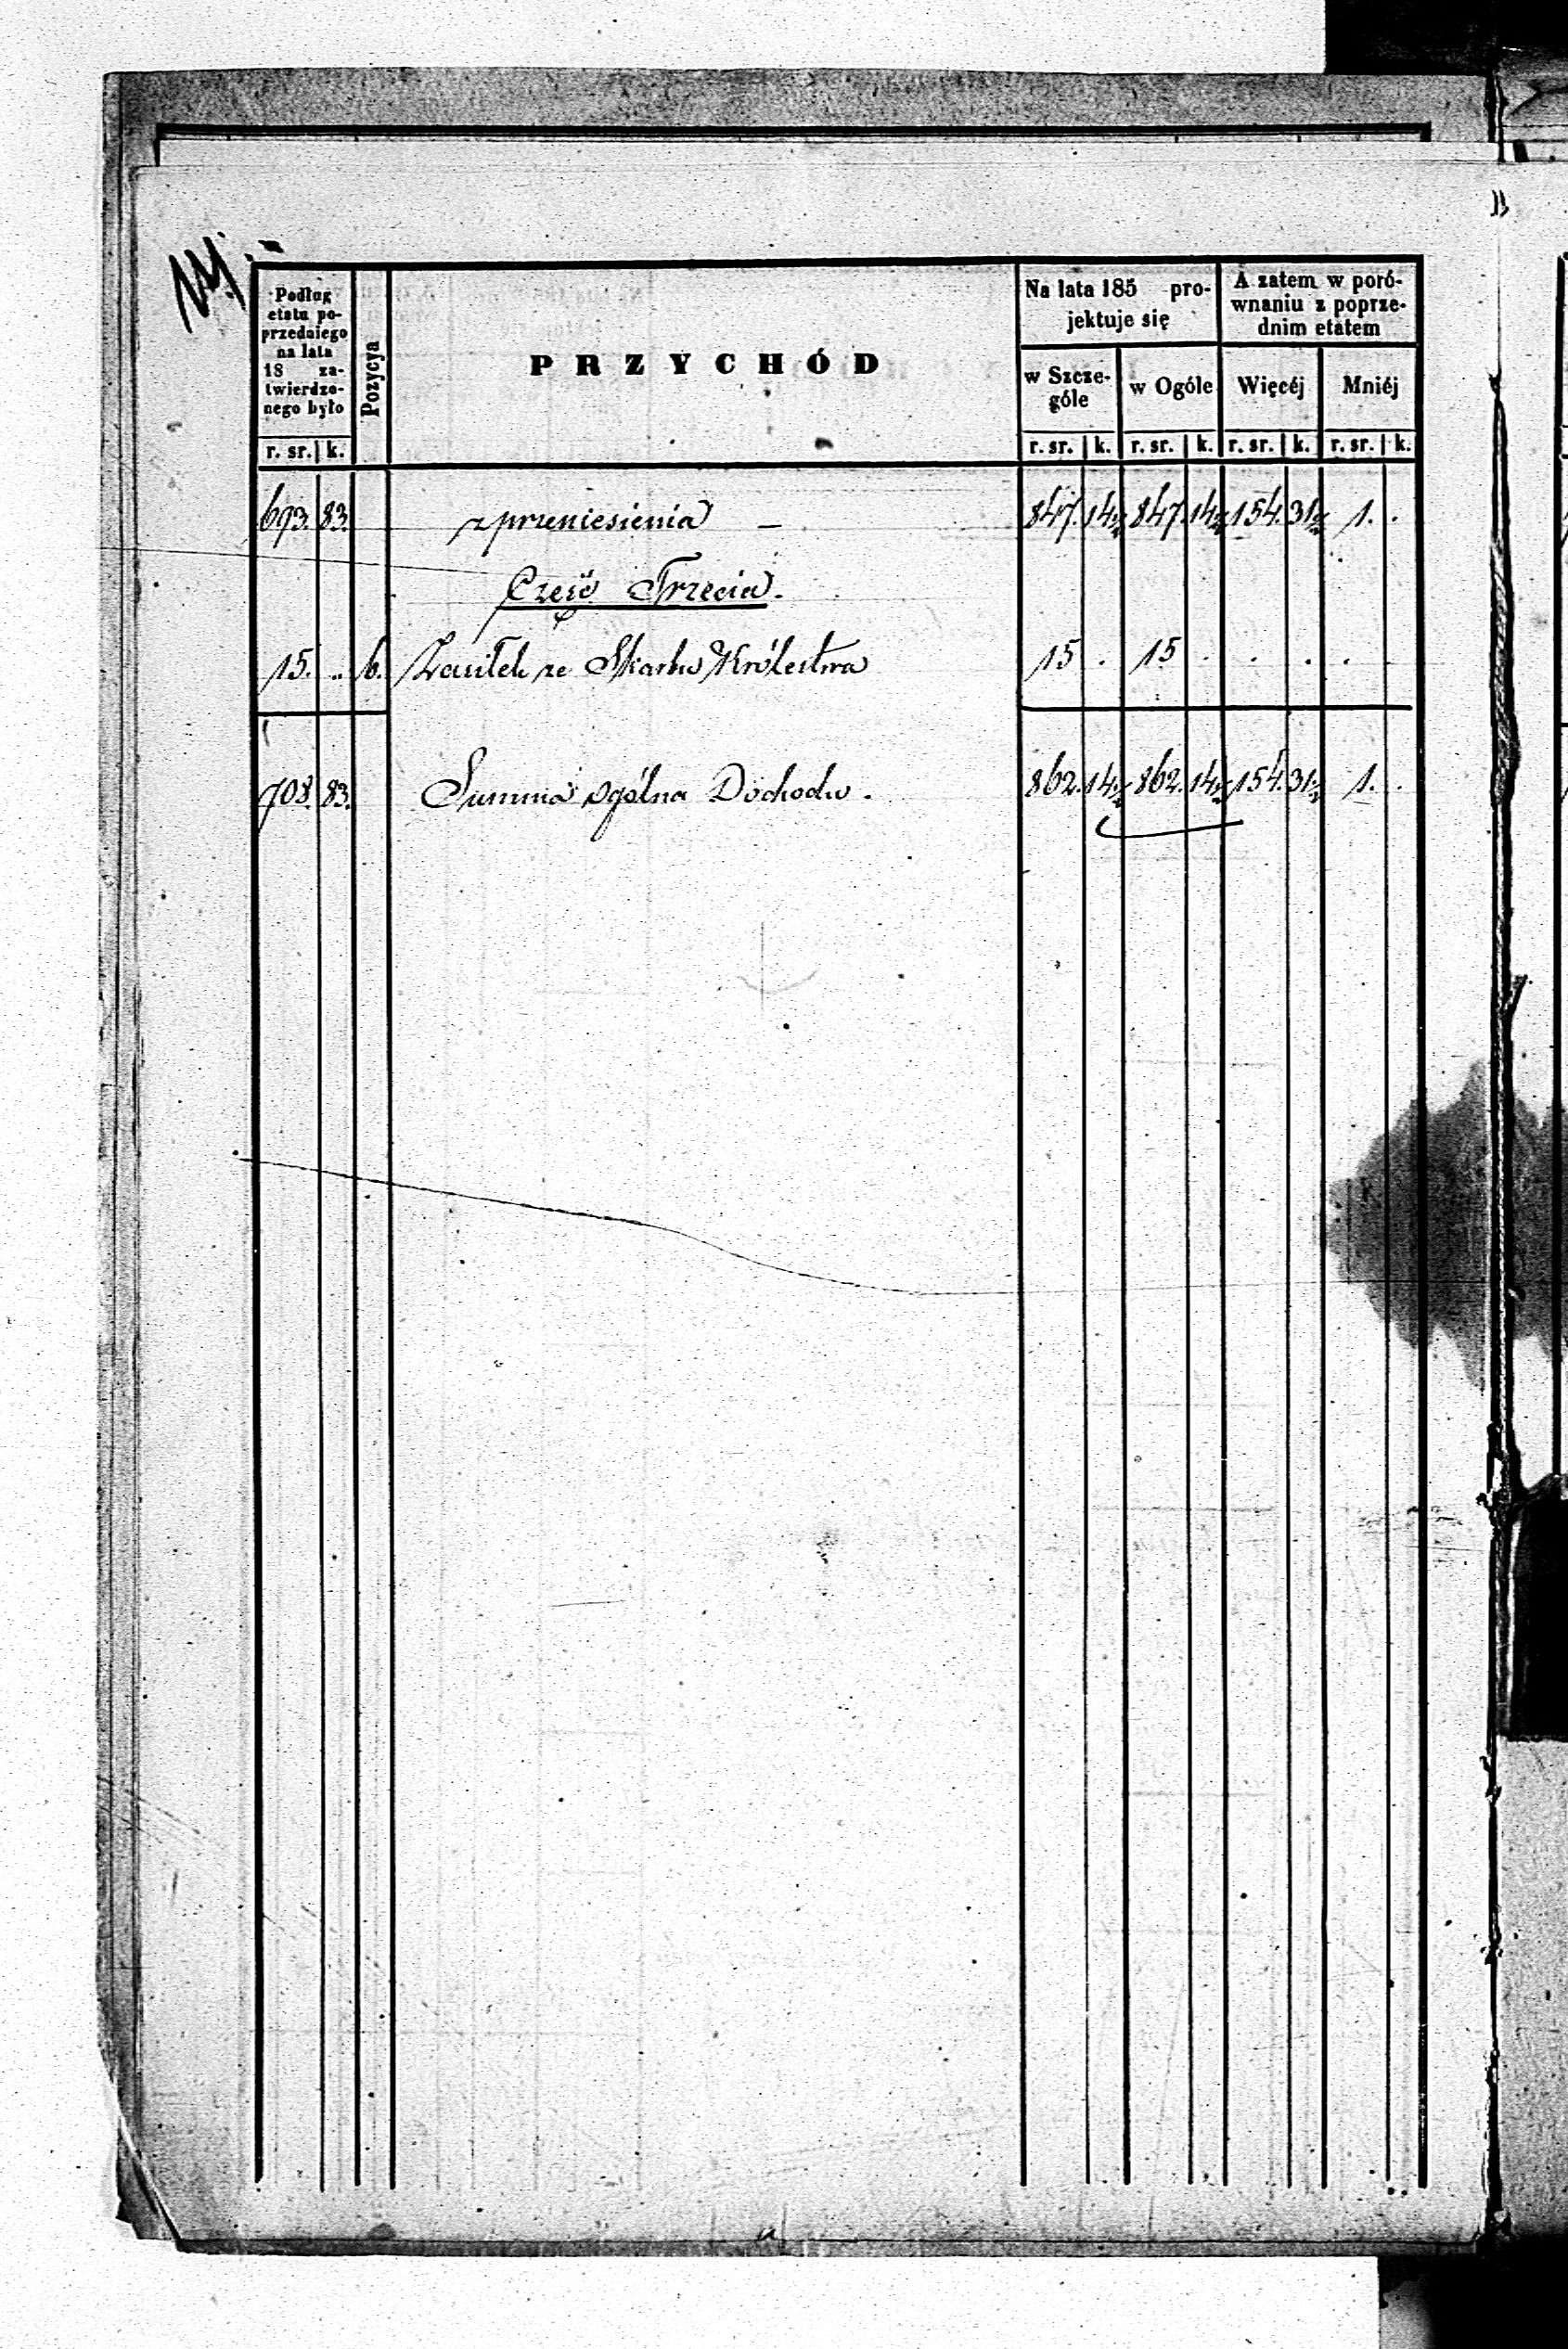 Podług etatu poprzedniego na lata 18 zatwierdzonego było | Pozycya | PRZYCHÓD | Na lata 185 projektuje się | A zatem w porównaniu z poprzednim etatem
w Szczególe | w Ogóle | Więcéj | Mniéj
r. sr. | k. | r. sr. | k. | r. sr. | k. | r. sr. | k. | r. sr. | k.
693. 83. z przeniesienia – 847. 14½ 847. 14½ 154. 31½ 1. .
Część Trzecia.
15. .. 6. Zasiłek ze Skarbu Królestwa 15 . 15 . . . . .
708. 83. Summa ogólna Dochodu. 862. 14½ 862. 14½ 154. 31½ 1. .